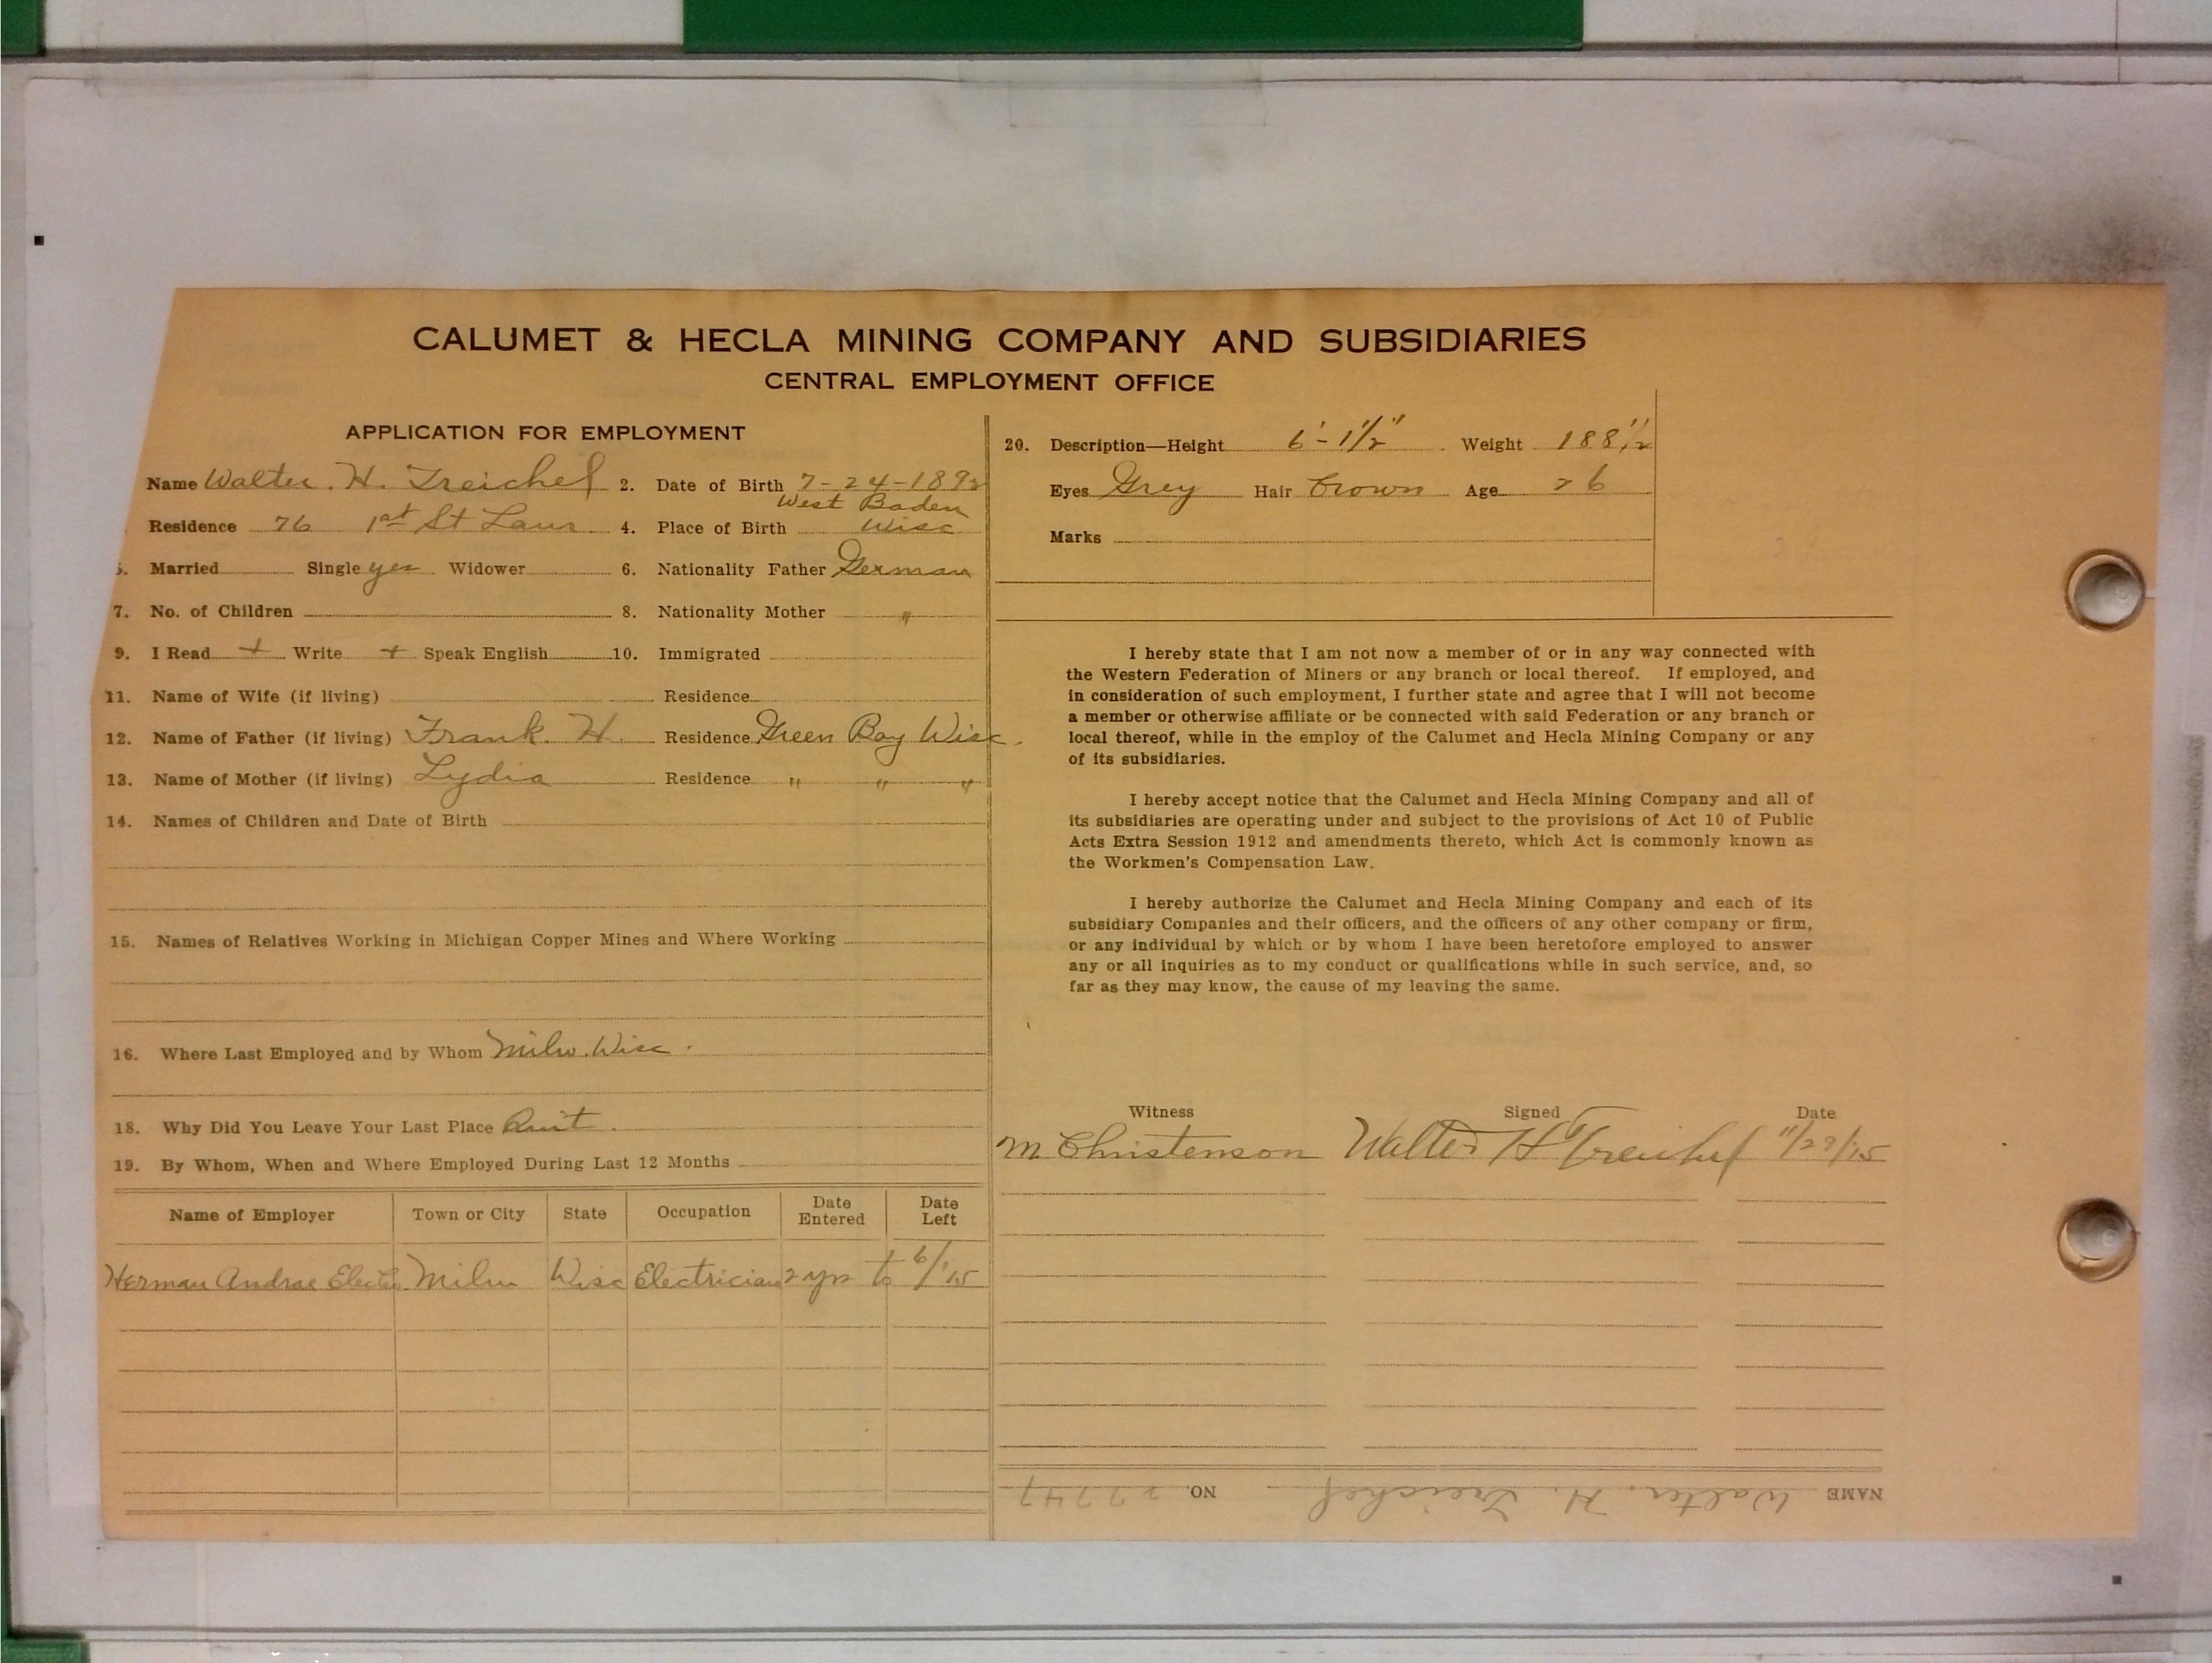 CALUMET & HECLA MINING COMPANY AND SUBSIDIARIES
CENTRAL EMPLOYMENT OFFICE
APPLICATION FOR EMPLOYMENT
Name Walter. H. Treichel 2. Date of Birth 7-24-1892
Residence 76 1st St Laur. 4. Place of Birth West Baden Wisc
5. Married Single yes Widower 6. Nationality Father German
7. No. of Children 8. Nationality Mother "
9. I Read + Write + Speak English 10. Immigrated
11. Name of Wife (if living) Residence
12. Name of Father (if living) Frank. H. Residence Green Bay Wisc.
13. Name of Mother (if living) Lydia Residence " " "
14. Names of Children and Date of Birth
15. Names of Relatives Working in Michigan Copper Mines and Where Working
16. Where Last Employed and by Whom Milw. Wisc.
18. Why Did You Leave Your Last Place Quit.
19. By Whom, When and Where Employed During Last 12 Months
Name of Employer Town or City State Occupation Date Entered Date Left
Herman Andrae Elect. Milw Wisc Electrician 2 yrs to 6/1/15
20. Description—Height 6'-1½" Weight 188½
Eyes Grey Hair brown Age 26
Marks
I hereby state that I am not now a member of or in any way connected with
the Western Federation of Miners or any branch or local thereof. If employed, and
in consideration of such employment, I further state and agree that I will not become
a member or otherwise affiliate or be connected with said Federation or any branch or
local thereof, while in the employ of the Calumet and Hecla Mining Company or any
of its subsidiaries.
I hereby accept notice that the Calumet and Hecla Mining Company and all of
its subsidiaries are operating under and subject to the provisions of Act 10 of Public
Acts Extra Session 1912 and amendments thereto, which Act is commonly known as
the Workmen's Compensation Law.
I hereby authorize the Calumet and Hecla Mining Company and each of its
subsidiary Companies and their officers, and the officers of any other company or firm,
or any individual by which or by whom I have been heretofore employed to answer
any or all inquiries as to my conduct or qualifications while in such service, and, so
far as they may know, the cause of my leaving the same.
Witness Signed Date
M Christenson Walter H Treichel 11/29/15
NAME Walter. H. Treichel NO. 27747